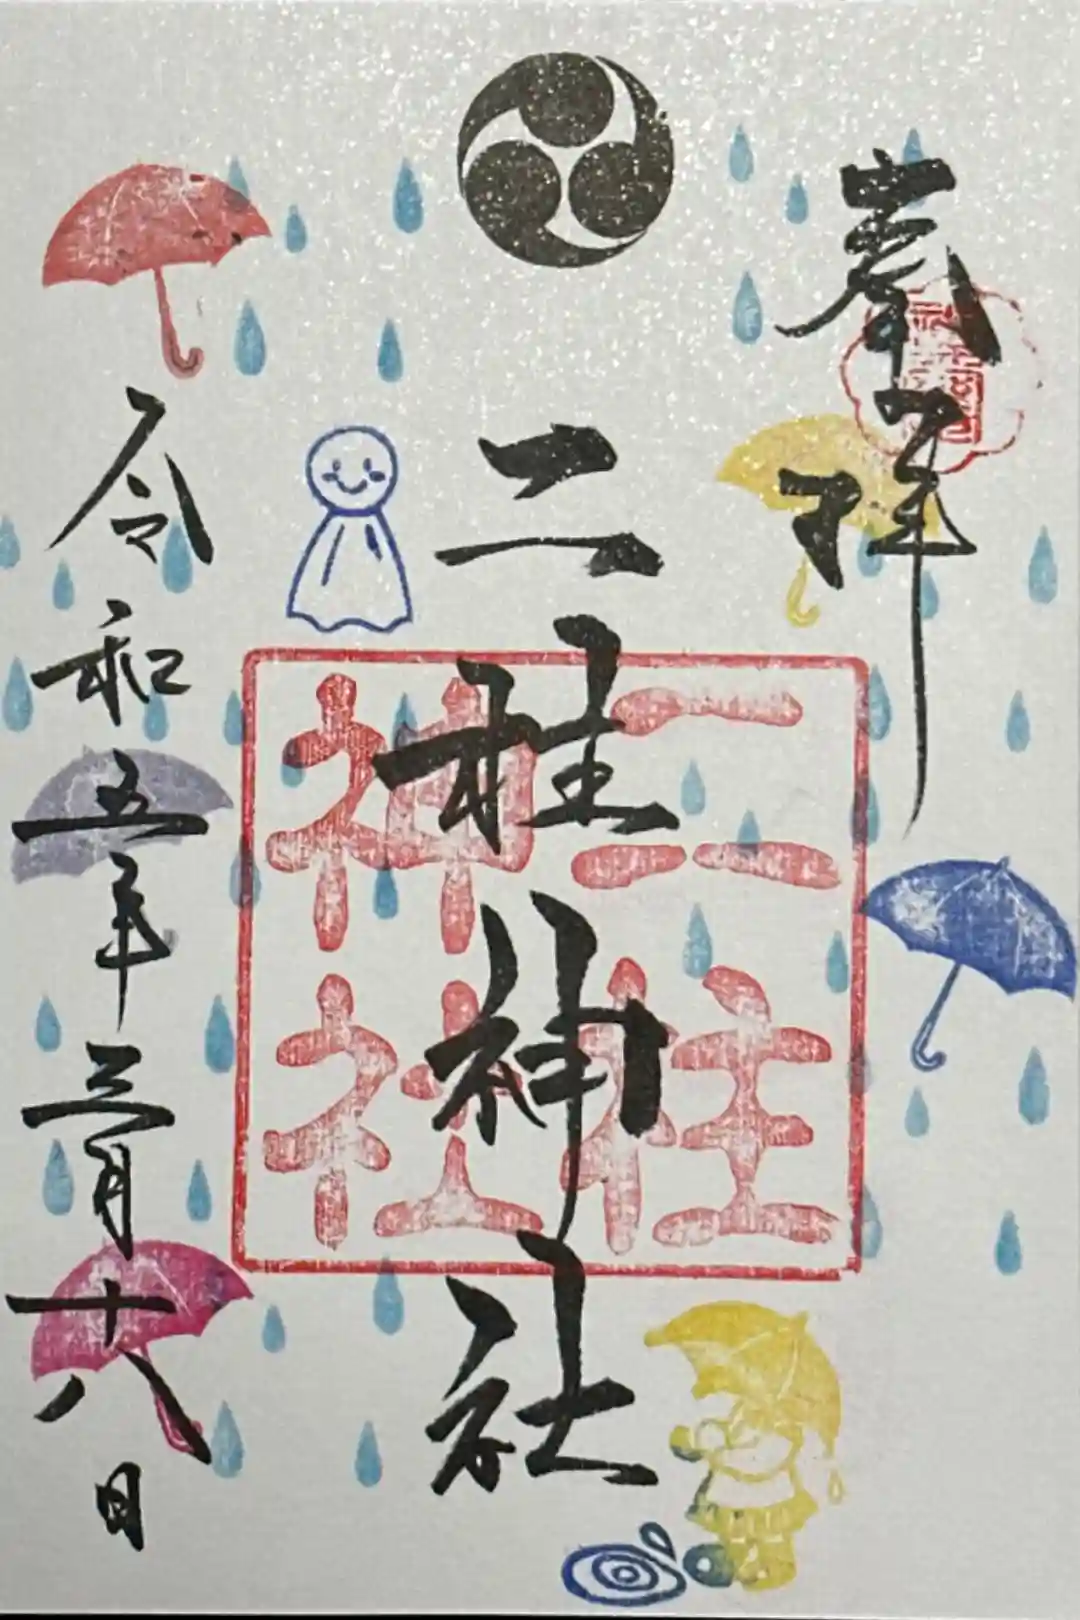 奉拝
二柱神社
二柱神社
令和五年三月十八日